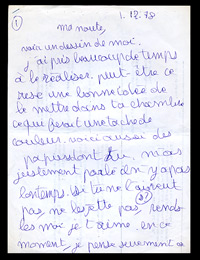 ①
1.12.78
ma noute,
voici un dessin de moi.
j'ai pris beaucoup de temps
à le réaliser. peut-être ce
sera une bonne idée de
le mettre dans ta chambre
ce qui ferait une tache de
couleur. voici aussi des
papus dont tu m'as
justement parlé il n'y a pas
longtemps. si tu ne l'aurait
pas ne les jette pas, rends-
les moi, je t'aime. en ce
moment, je pense surement